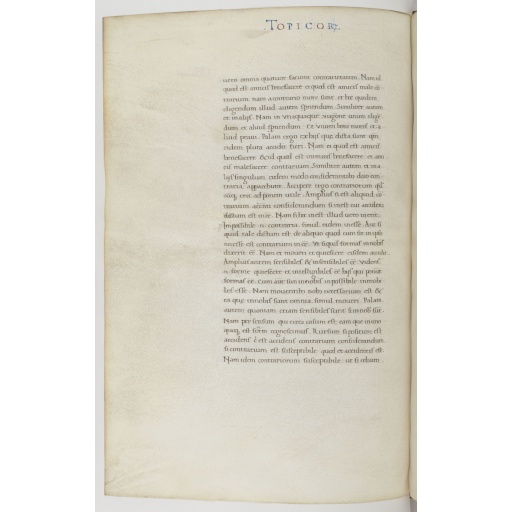 .TOPICOR.
autem omnia quatuor faciunt contrarietatem. Nam id
quod est amicis benefacere et quod est amicis male
trarium nam a contrario more sunt et hoc quidem
eligendum illud autem fugiendum. Similiter autem
et in aliis. Nam in utraque unum elige
dum et aliud fugiendum. Et unum boni moris et a
liud praui. Palam ergo ex his quae dicta sunt quon
eidem plura contraria fieri. Nam ei quod est amicis
benefacere & id quod est inimicis benefacere et ami
cis malefacere contrarium. Similiter autem et in a
liis singulum eodem modo considerantibus duo con
traria apparebunt. Accipere ergo contrariorum quod
cumque erit ad positionem utile. Amplius si est aliquid
trarium accidenti considerandum si inest cui accidens
dictum est inesse. Nam si hoc inest illud non inerit
Impossibile contraria simul eidem inesse. Aut si
quid tale dictum est de aliquo quod cum sit in ipso
inesse est contrarium inesse. Ut si quis formas in nobis
dixerit esse. Nam et moueri et quiescere easdem accidit
Amplius autem sensibiles & insensibiles esse. Videntur
formae quiescere et intelligibiles esse his qui ponunt
formas esse. Cum autem sint in nobis impossibile inmobi
les esse. Nam mouentibus nobis necessarium est &
ea quae in nobis sunt omnia simul moueri. Palam
autem quoniam etiam sensibiles sunt si in nobis sunt
Nam per sensum qui circa uisum est eam quae in uno
quoque est formam cognoscimus. Rursum si positum est
accidens cui est accidens contrarium considerandum
si contrarium est susceptibile quod et accidentis est
Nam idem contrariorum susceptibile ut si odium